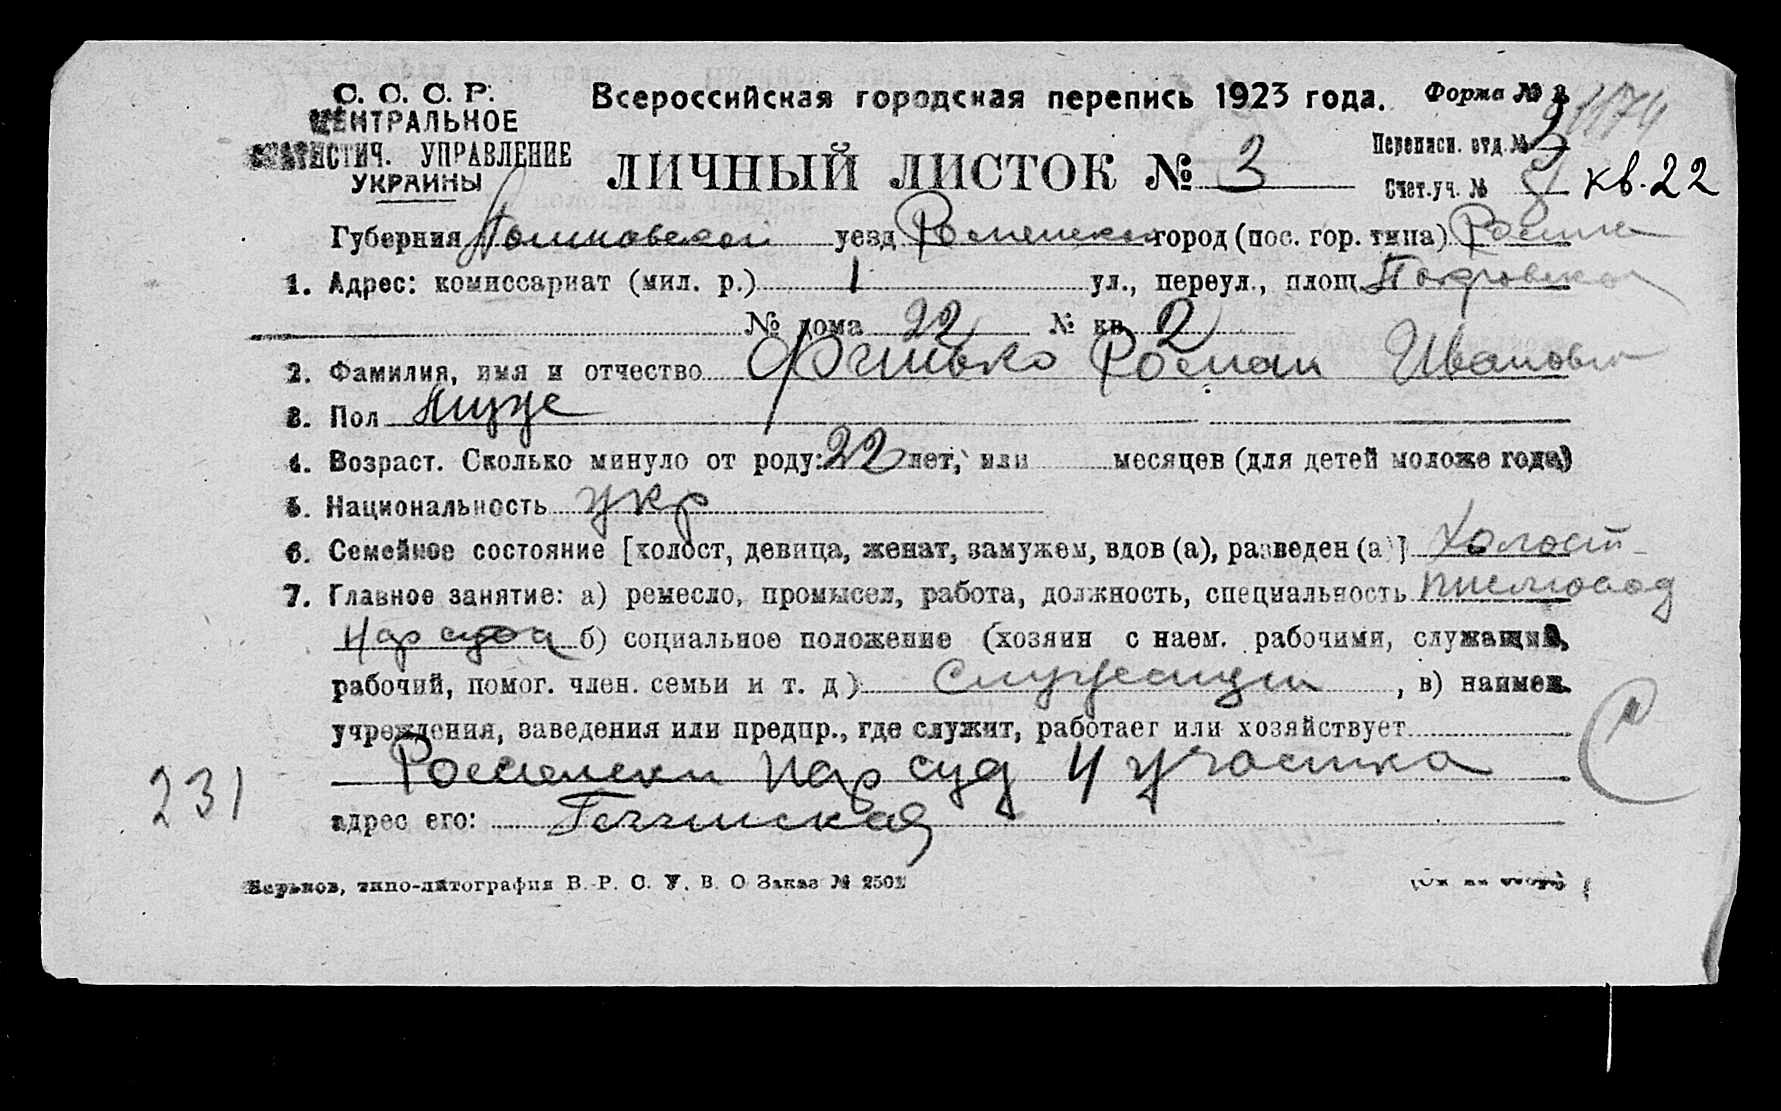 С. С. С. Р.
ЦЕНТРАЛЬНОЕ
СТАТИСТИЧ. УПРАВЛЕНИЕ
УКРАИНЫ
Всероссийская городская перепись 1923 года. Форма № 2
1174
ЛИЧНЫЙ ЛИСТОК № 3
Переписн. отд. №
Счет. уч. № кв. 22
Губерния уезд Роменский город (пос. гор. типа) Ромны
1. Адрес: комиссариат (мил. р.) 1 ул., переул., площ. Покровская
№ дома 22 № кв. 2
2. Фамилия, имя и отчество Роман Иванович
3. Пол Муж
4. Возраст. Сколько минуло от роду: 22 лет, или месяцев (для детей моложе года)
5. Национальность укр
6. Семейное состояние [холост, девица, женат, замужем, вдов (а), разведен (а)] Холост
7. Главное занятие: а) ремесло, промысел, работа, должность, специальность
Нарсуда б) социальное положение (хозяин с наем. рабочими, служащий,
рабочий, помог. член. семьи и т. д.) Служащий, в) наимен.
учреждения, заведения или предпр., где служит, работает или хозяйствует
Роменский Нар суд 4 участка
231
адрес его:
Харьков, типо-литография В. Р. С. У. В. О Заказ № 2502